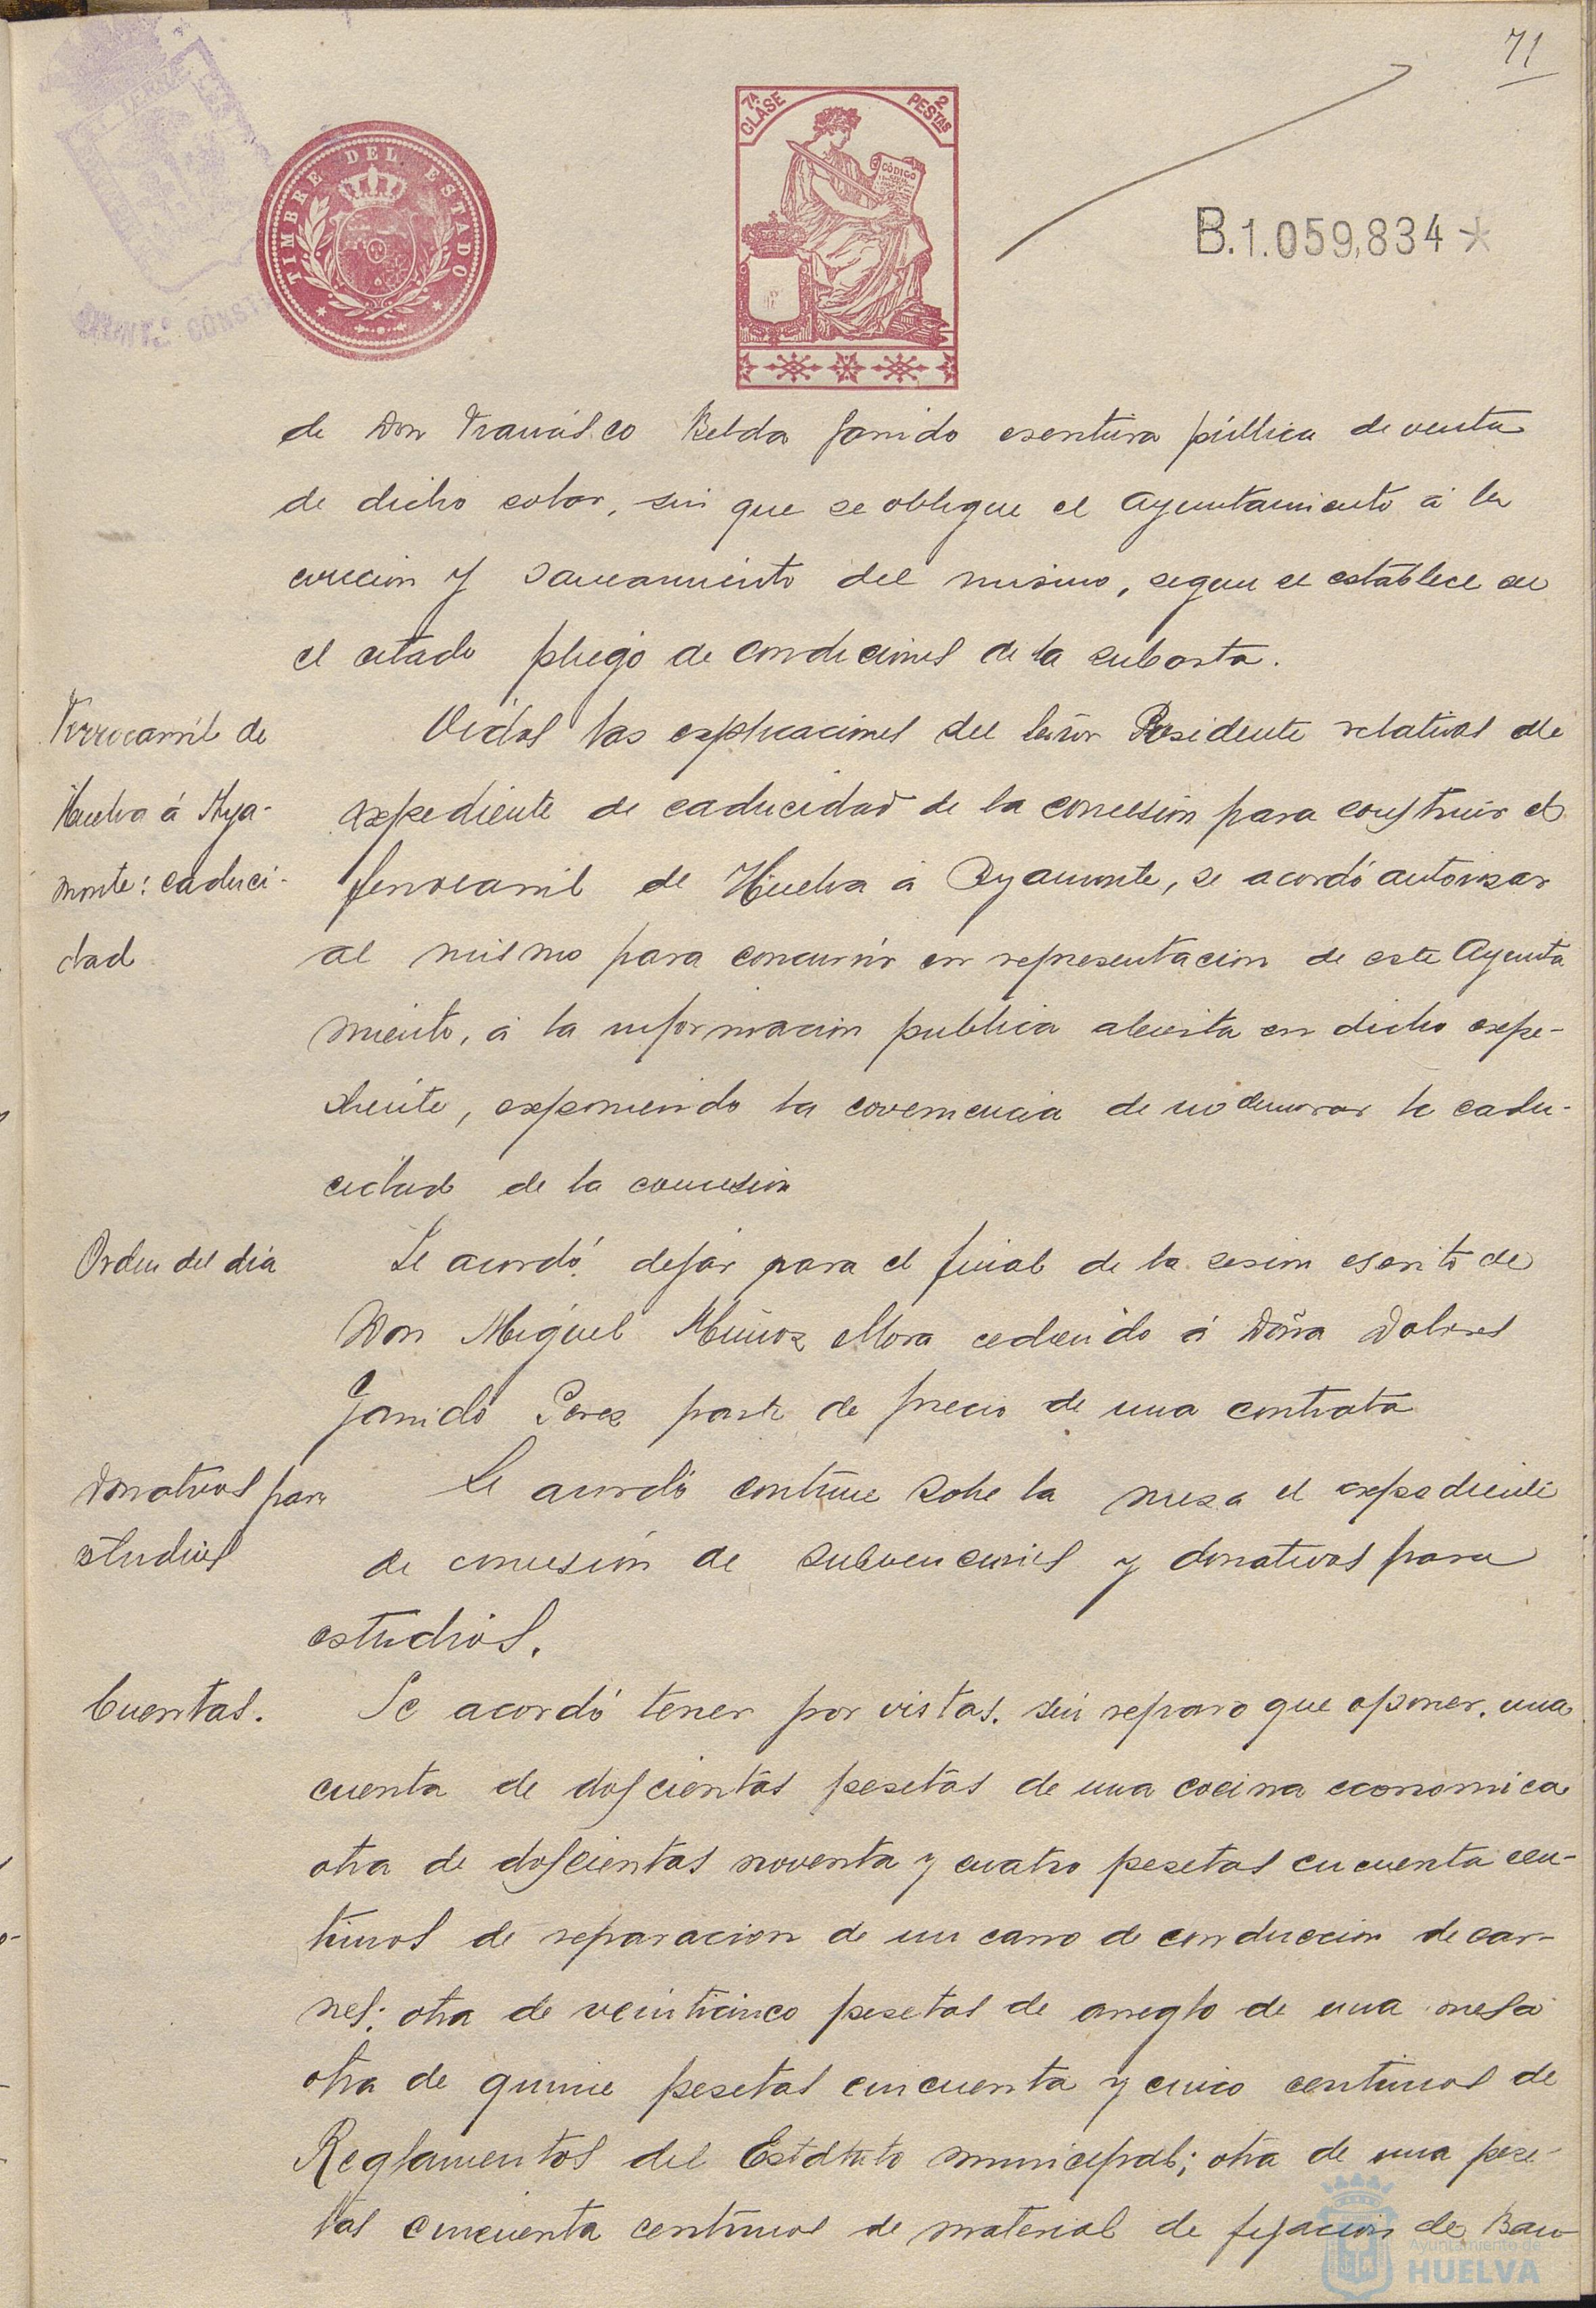 71
TIMBRE DEL ESTADO
7ª CLASE
2 PESTAS
CÓDIGO
B.1.059,834*
de Don Francisco Belda Garrido escritura pública de venta
de dicho solar, sin que se obligue el Ayuntamiento á la
evicción y saneamiento del mismo, segun se establece en
el citado pliego de condiciones de la subasta.
Ferrocarril de
Huelva á Aya-
monte: caduci-
dad
Oidas las explicaciones del Señor Presidente relativas ale
expediente de caducidad de la concesión para construir el
ferrocarril de Huelva á Ayamonte, se acordó autorizar
al mismo para concurrir en representacion de este Ayunta
miento, á la informacion publica abierta en dicho expe-
diente, exponiendo la covenencia de no demorar la cadu-
cidad de la concesión
Orden del dia
Se acordó dejar para el final de la sesion escrito de
Don Miguel Muñoz Mora cediendo á Doña Dolores
Garrido Perez parte de precio de una contrata
Donativos para
estudios
Se acordó continue sobre la mesa el expediente
de concesión de subvenciones y donativos para
estudios.
Cuentas.
Se acordó tener por vistas. sin reparo que oponer. una
cuenta de doscientas pesetas de una cocina economica
otra de doscientas noventa y cuatro pesetas cincuenta cen-
timos de reparacion de un carro de conduccion de car-
nes; otra de veinticinco pesetas de arreglo de una mesa
otra de quince pesetas cincuenta y cinco centimos de
Reglamentos del Estatuto municipal; otra de una pese-
tas cincuenta centimos de material de fijacion de Ban
Ayuntamiento de
HUELVA